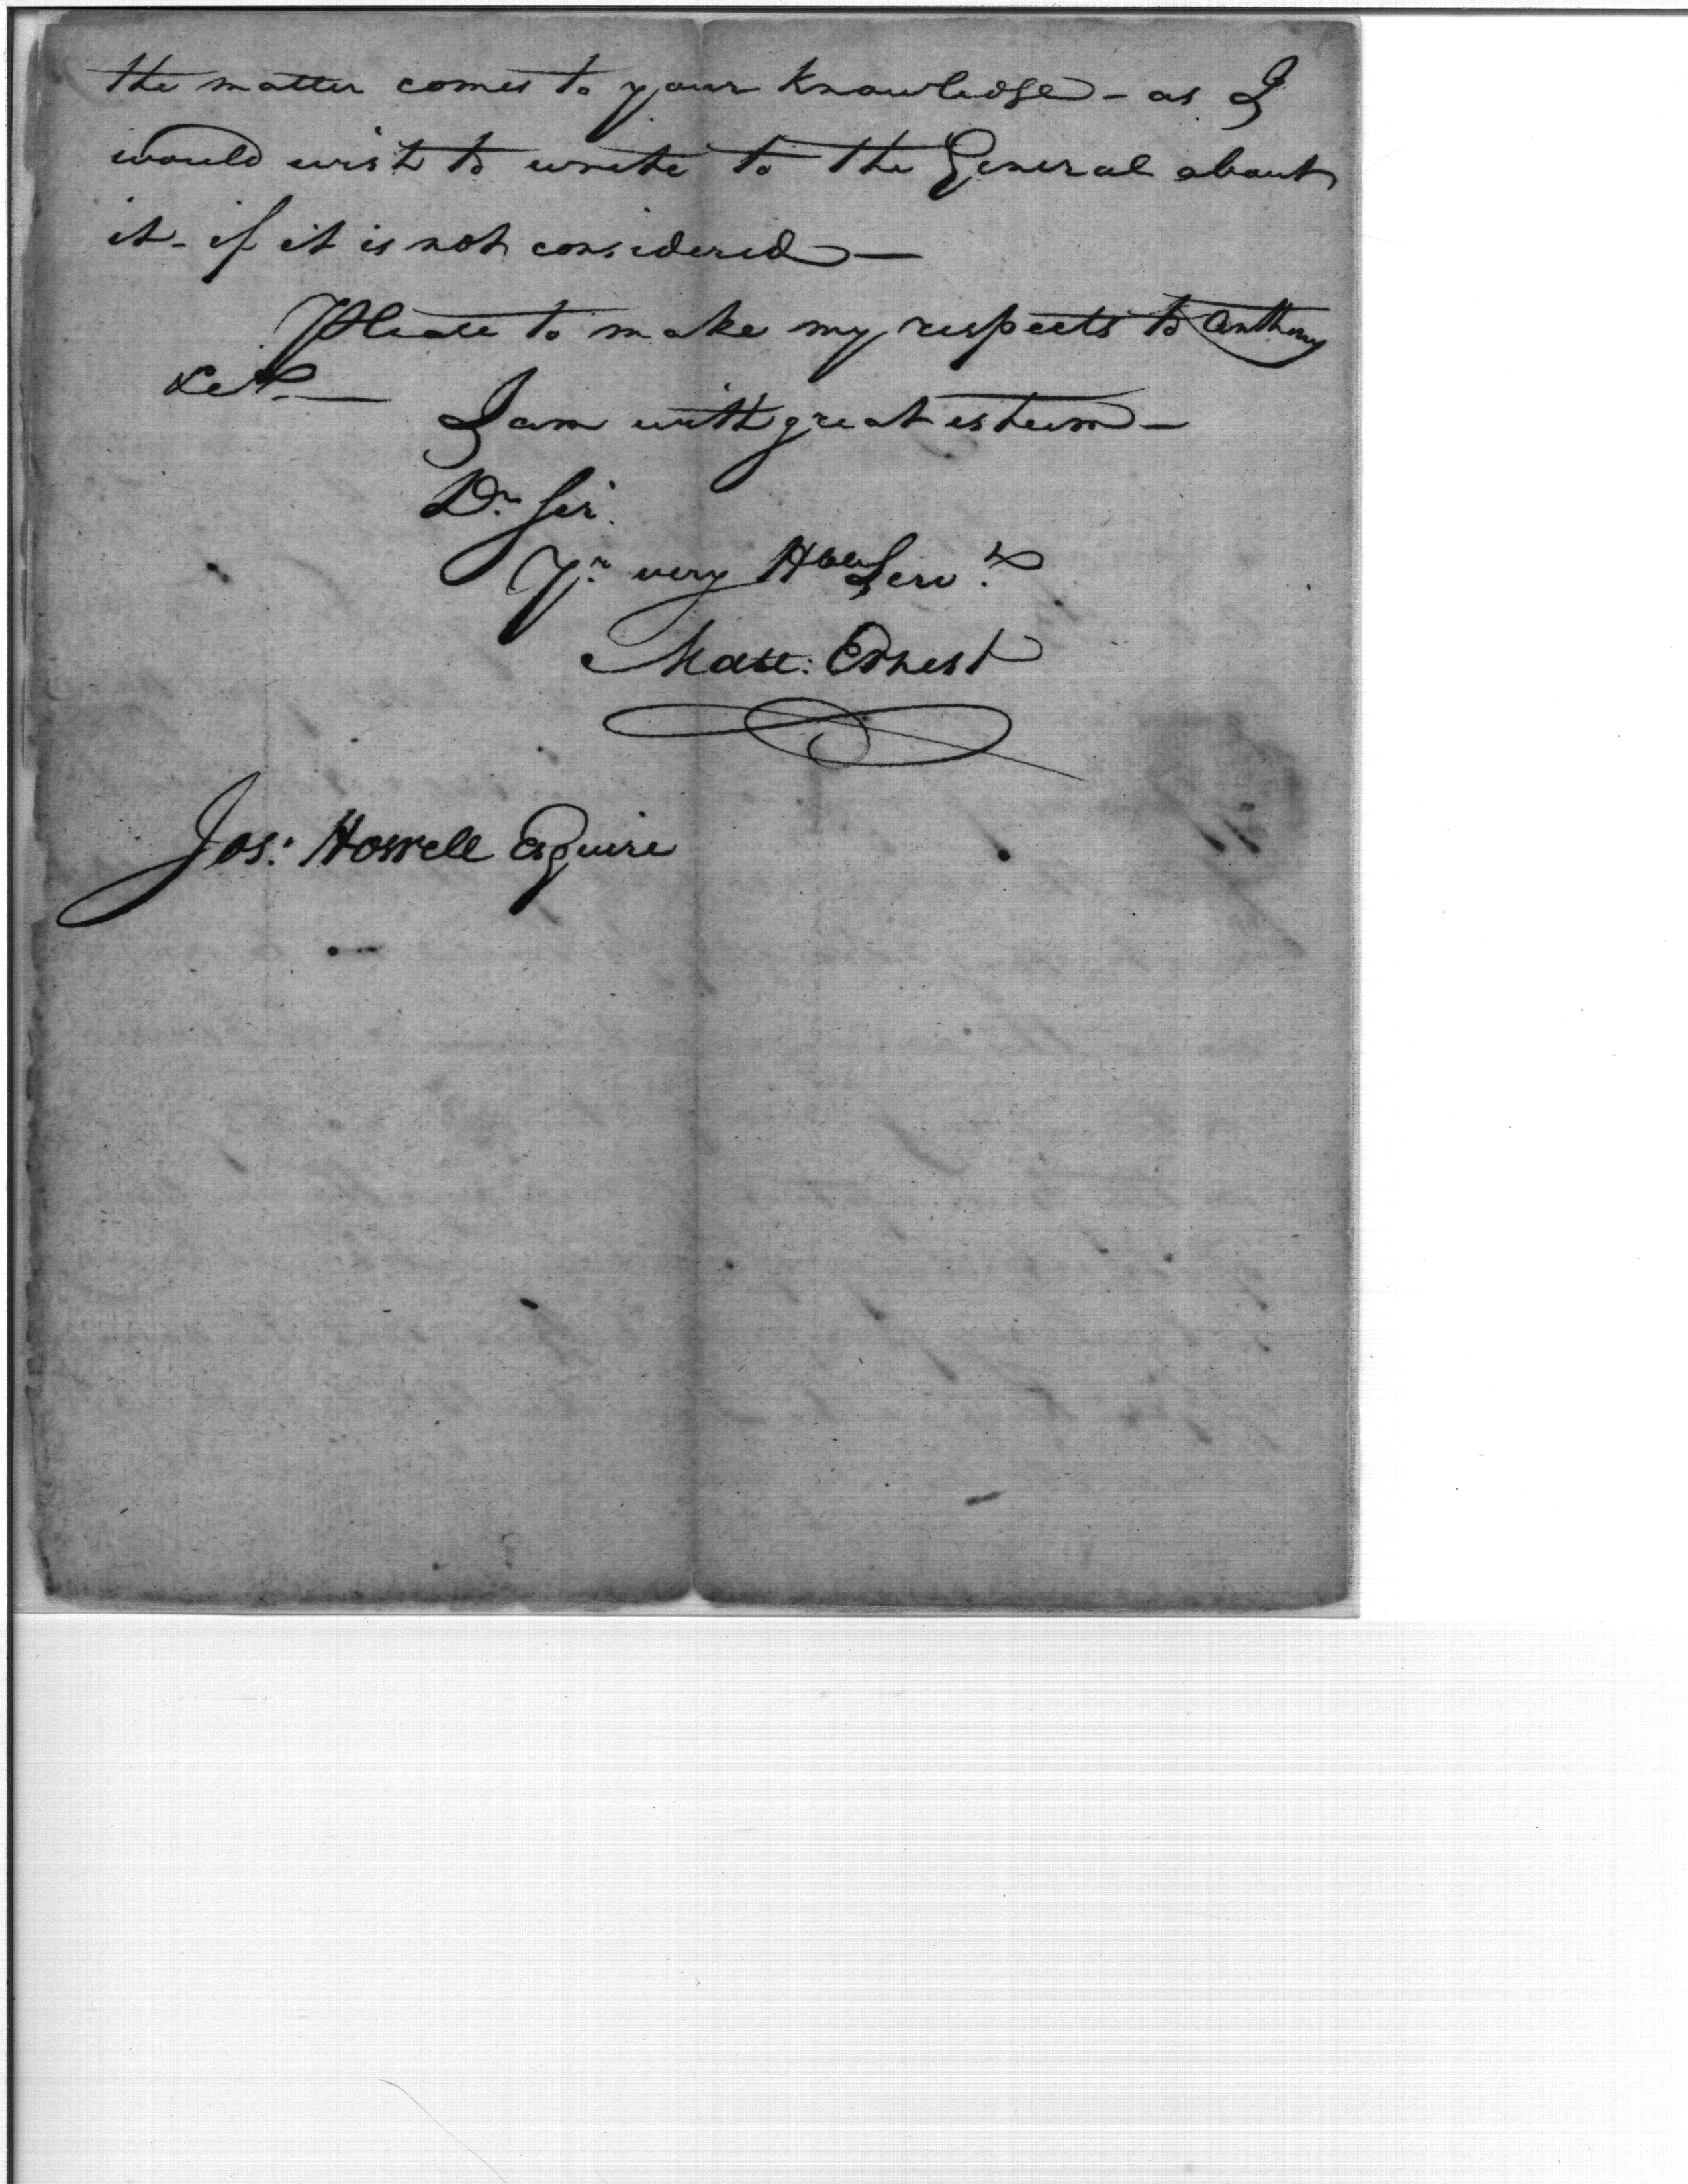 the matter comes to your knowledge - as I
would wish to write to the General about
it - if it is not considered —
Please to make my respects to Anthony
&c —
I am with great esteem —
Dr. Sir.
Yr. very Hble Servt.
Matt: Ernest
Jos: Howell Esquire